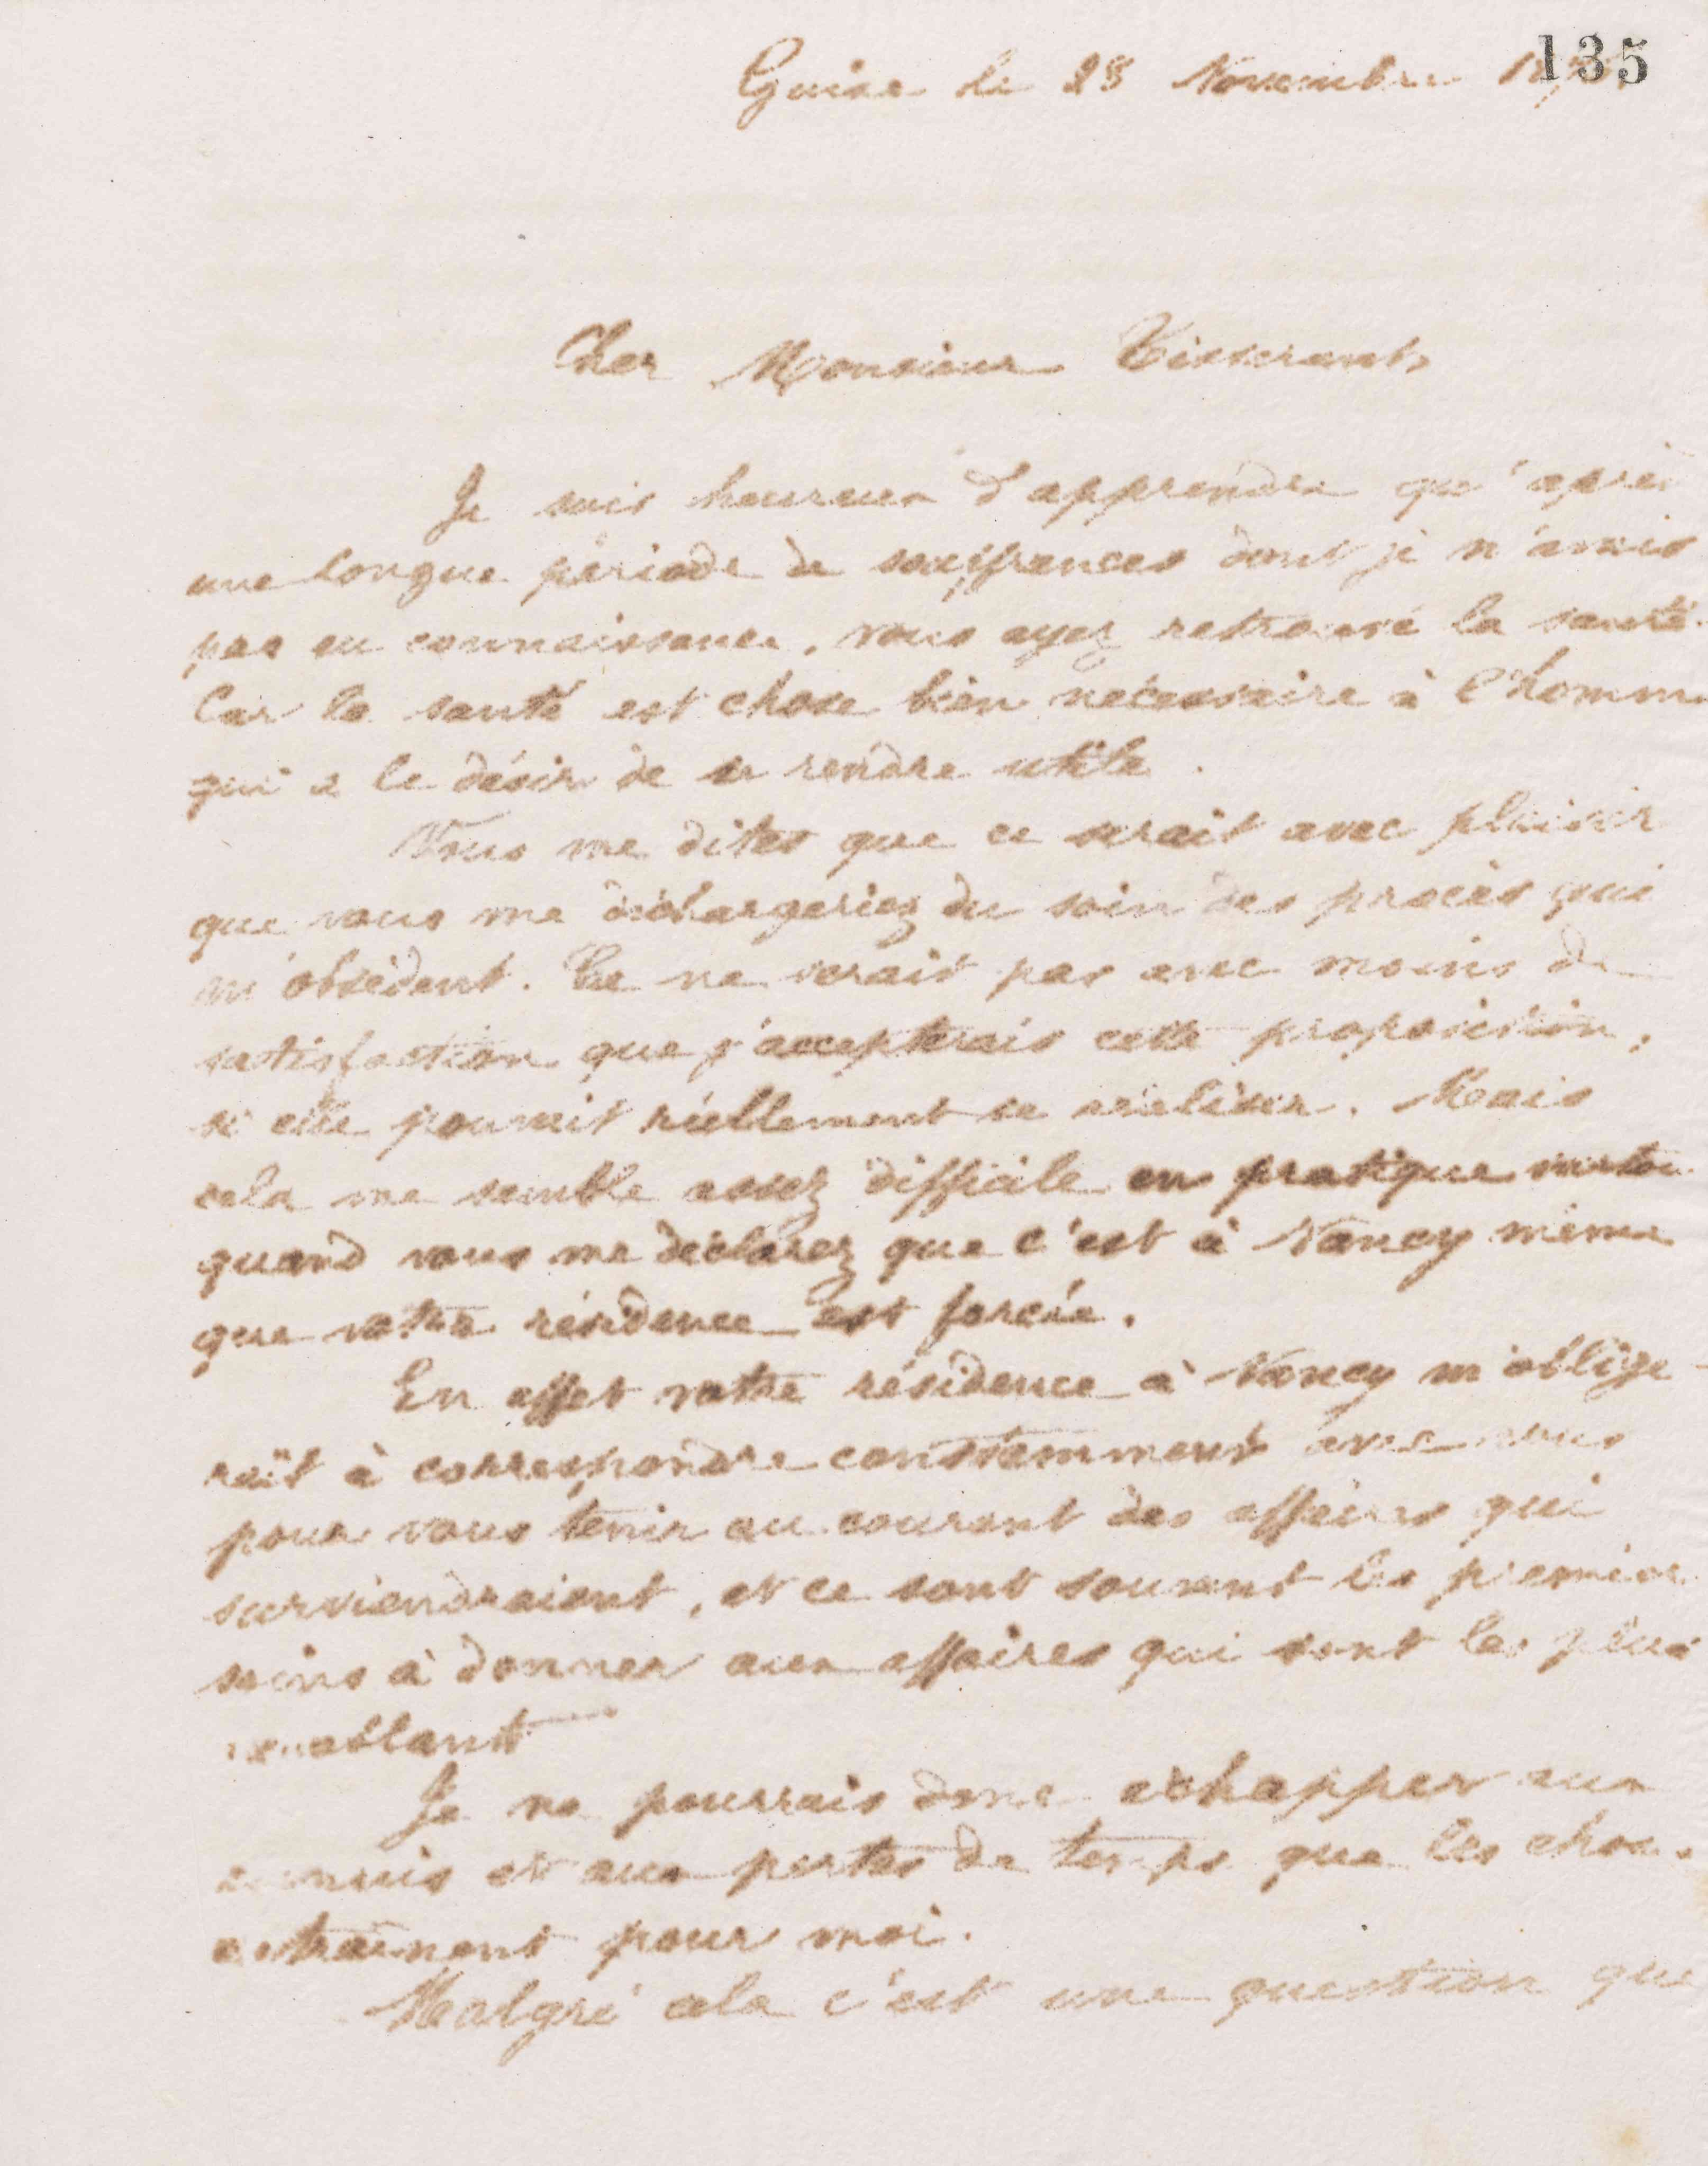 135
Guise le 28 Novembre
Cher Monsieur Tisserant
Je suis heureux d'apprendre qu'après
une longue période de souffrances dont je n'avais
pas eu connaissance, vous ayez retrouvé la santé.
Car la santé est chose bien nécessaire à l'homme
qui a le désir de se rendre utile.
Vous me dites que ce serait avec plaisir
que vous me déchargeriez du soin des procès qui
m'obsèdent. Ce ne serait pas avec moins de
satisfaction que j'accepterais cette proposition,
si elle pouvait réellement se réaliser. Mais
cela me semble assez difficile en pratique surtout
quand vous me déclarez que c'est à Nancy même
que votre résidence est forcée.
En effet votre résidence à Nancy m'oblige-
rait à correspondre constamment avec vous
pour vous tenir au courant des affaires qui
surviendraient, et ce sont souvent les premiers
soins à donner aux affaires qui sont les plus
Je ne pourrais donc échapper aux
ennuis et aux pertes de temps que les choses
entraînent pour moi.
Malgré cela c'est une question que